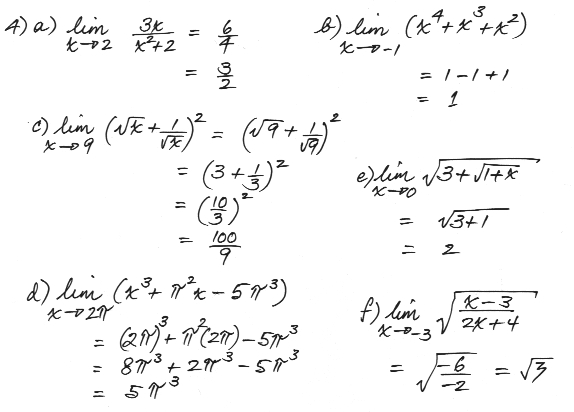 4) a) lim x→2 3x/(x²+2) = 6/4
= 3/2
b) lim x→-1 (x⁴+x³+x²)
= 1-1+1
= 1
c) lim x→9 (√x + 1/√x)² = (√9 + 1/√9)²
= (3 + 1/3)²
= (10/3)²
= 100/9
d) lim x→2π (x³ + π²x - 5π³)
= (2π)³ + π²(2π) - 5π³
= 8π³ + 2π³ - 5π³
= 5π³
e) lim x→0 √(3+√(1+x))
= √(3+1)
= 2
f) lim x→-3 √((x-3)/(2x+4))
= √(-6/-2) = √3